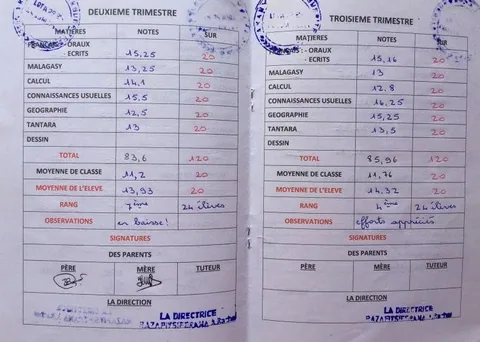 DEUXIEME TRIMESTRE
MATIERES NOTES SUR
FRANCAIS : - ORAUX
- ECRITS 15,25 20
MALAGASY 13,25 20
CALCUL 14,1 20
CONNAISSANCES USUELLES 15,5 20
GEOGRAPHIE 12,5 20
TANTARA 13 20
DESSIN
TOTAL 83,6 120
MOYENNE DE CLASSE 11,2 20
MOYENNE DE L'ELEVE 13,93 20
RANG 7ème 24 élèves
OBSERVATIONS en baisse!
SIGNATURES
DES PARENTS
PÈRE MÈRE TUTEUR
LA DIRECTION
LA DIRECTRICE
TROISIEME TRIMESTRE
MATIERES NOTES SUR
FRANCAIS : - ORAUX
- ECRITS 15,16 20
MALAGASY 13 20
CALCUL 12,8 20
CONNAISSANCES USUELLES 16,25 20
GEOGRAPHIE 15,25 20
TANTARA 13,5 20
DESSIN
TOTAL 85,96 120
MOYENNE DE CLASSE 11,76 20
MOYENNE DE L'ELEVE 14,32 20
RANG 4ème 24 élèves
OBSERVATIONS efforts appréciés
SIGNATURES
DES PARENTS
PÈRE MÈRE TUTEUR
LA DIRECTION
LA DIRECTRICE